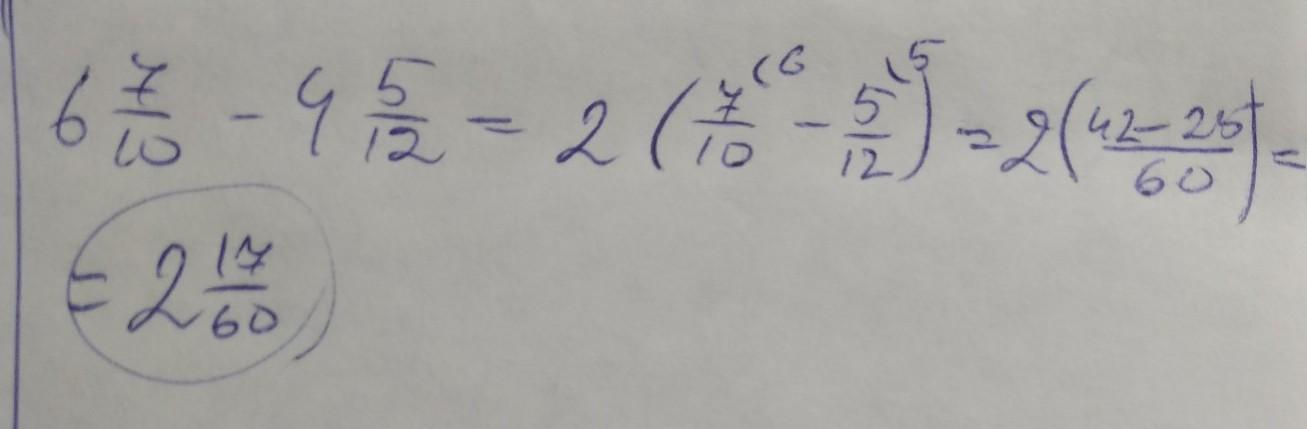 6 7/10 - 4 5/12 = 2 (7/10 (6 - 5/12 (5) = 2 (42-25/60) =
= 2 17/60